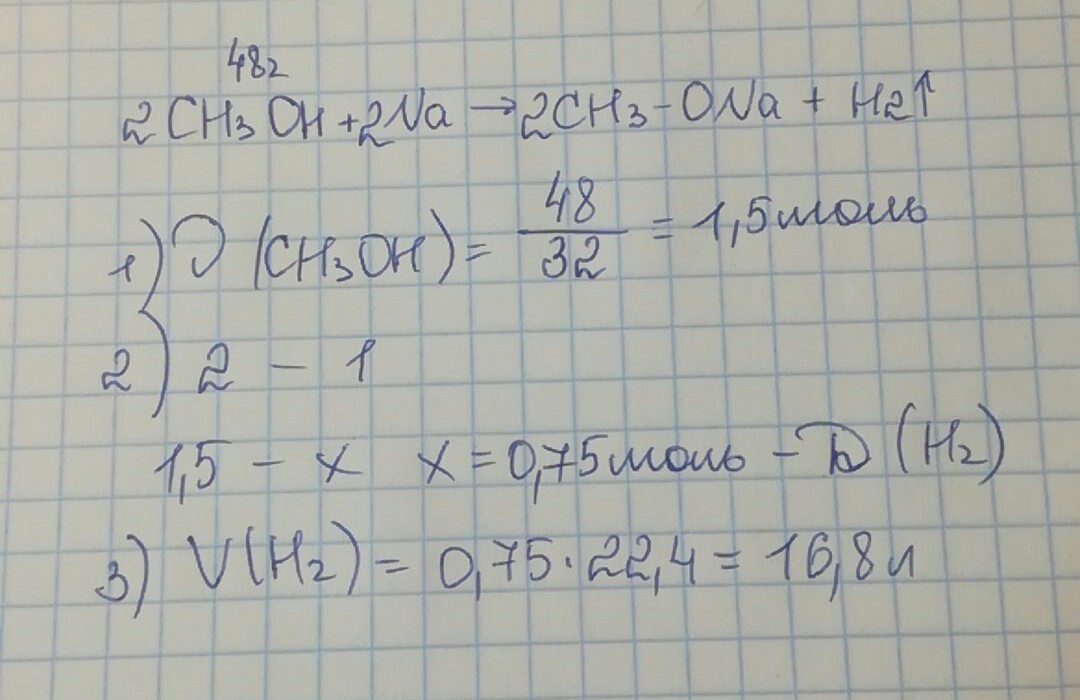 48г
2CH3OH+2Na→2CH3-ONa + H2↑
1) ν (CH3OH) = 48/32 = 1,5моль
2) 2 - 1
1,5 - x x = 0,75моль - ν (H2)
3) V(H2) = 0,75·22,4 = 16,8л